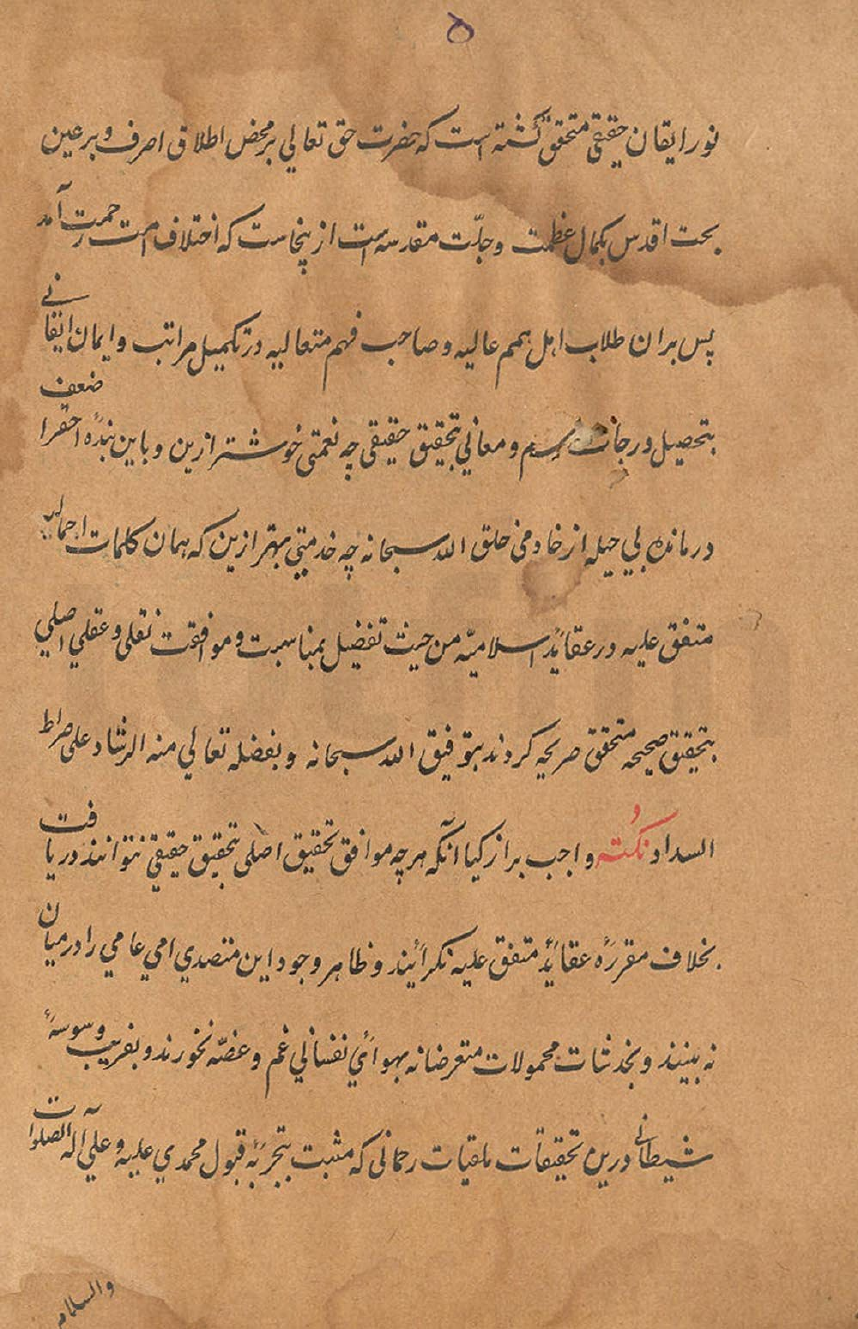 ۵
نور ایقان حقیقی متحقق گشته است که حضرت حق تعالی بر محض اطلاق اصرف و بر عین
بحت اقدس بکمال عظمت و جلّت مقدسه است ازینجاست که اختلاف امت رحمت آمد
پس بران طلاب اهل همم عالیه و صاحب فهم متعالیه در تکمیل مراتب و ایمان ایقانی
بتحصیل درجات و معانی بتحقیق حقیقی چه نعمتی خوشتر ازین و باین بندهٔ احقر اضعف
درمانده بی حیله از خادمی خلق الله سبحانه چه خدمتی بهتر ازین که همان کلمات اجمالیه
متفق علیه در عقاید اسلامیه من حیث تفضیل بمناسبت و موافقت نقلی و عقلی اصلی
بتحقیق صحیحه متحقق صریحه کردند بتوفیق الله سبحانه و بفضله تعالی منه الرشاد علی صراط
السداد نکته و واجب بر ازکیا آنکه هرچه موافق تحقیق اصلی بتحقیق حقیقی نتوانند دریافت
بخلاف مقررهٔ عقاید متفق علیه نگرایند و ظاهر وجود این متصدی امی عامی را درمیان
نه بینند و بخدشات محمولات متعرضانه بهوای نفسانی غم و غصّه نخورند و بفریب وسوسهٔ
شیطانی درین تحقیقات ملقیات رحمانی که مثبت بتجربهٔ قبول محمدی علیه و علی آله الصلوات
والسلام